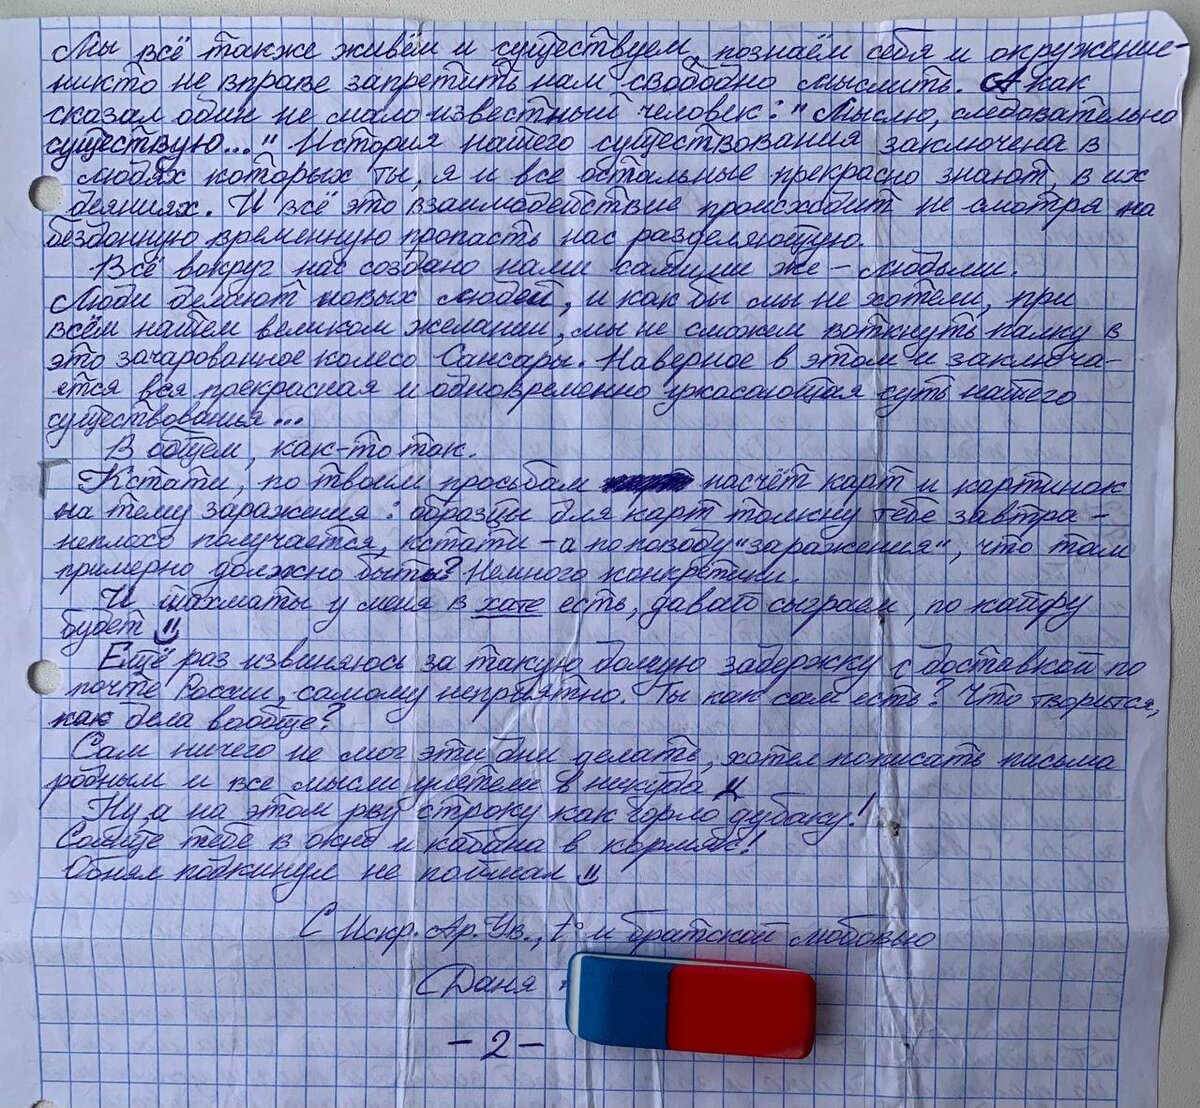 Мы всё также живём и существуем, познаём себя и окружение-
никто не вправе запретить нам свободно мыслить. А как
сказал один не мало известный человек: "Мыслю, следовательно
существую..." История нашего существования заключена в
людях которых ты, я и все остальные прекрасно знают, в их
деяниях. И всё это взаимодействие происходит не смотря на
бездонную временную пропасть нас разделяющую.
Всё вокруг нас создано нами самими же - людьми.
Люди делают новых людей, и как бы мы не хотели, при
всём нашем великом желании, мы не сможем воткнуть палку в
это зачарованное колесо Сансары. Наверное в этом и заключа-
ется вся прекрасная и одновременно ужасающая суть нашего
существованья...
В общем, как-то так.
Кстати, по твоим просьбам насчёт карт и картинок
на тему заражения: образцы для карт толкну тебе завтра -
неплохо получается, кстати - а по поводу "заражения", что там
примерно должно быть? Немного конкретики.
И шахматы у меня в хате есть, давай сыграем, по кайфу
будет
Ещё раз извиняюсь за такую долгую задержку с доставкой по
почте России, самому неприятно. Ты как сам есть? Что творится,
как дела вообще?
Сам ничего не мог эти дни делать, хотел пописать письма
родным и все мысли улетели в никуда
Ну а на этом рву строку как горло дубаку!
Солнце тебе в окно и кабана в кормяк!
Обнял подкинул не поймал
С Искр. Ар. Ув., t° и братской любовью
Даня
-2-